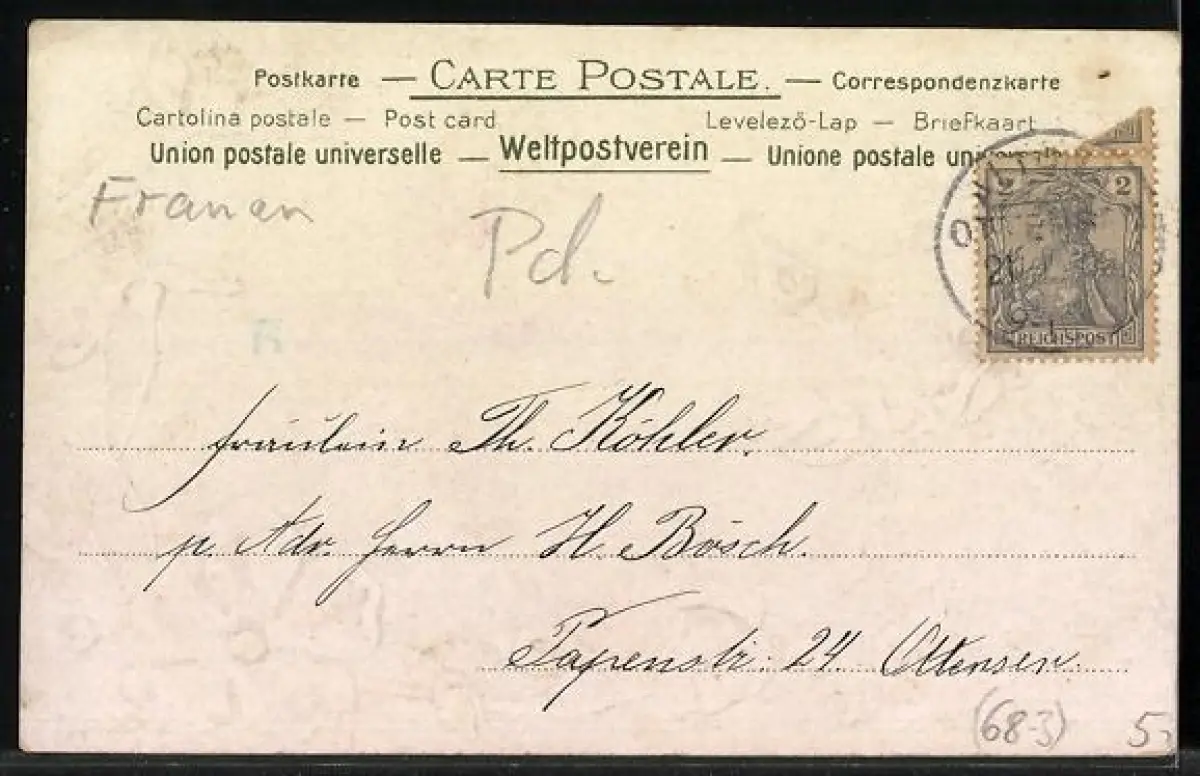 Postkarte — CARTE POSTALE. — Correspondenzkarte
Cartolina postale — Post card Levelező-Lap — Briefkaart
Union postale universelle — Weltpostverein — Unione postale
Frauen
Pd.
2 2
REICHSPOST
21
Fräulein Th. Köhler.
p. Adr. Herrn H. Bösch.
Papenstr. 24. Ottensen.
(68-3) 5,